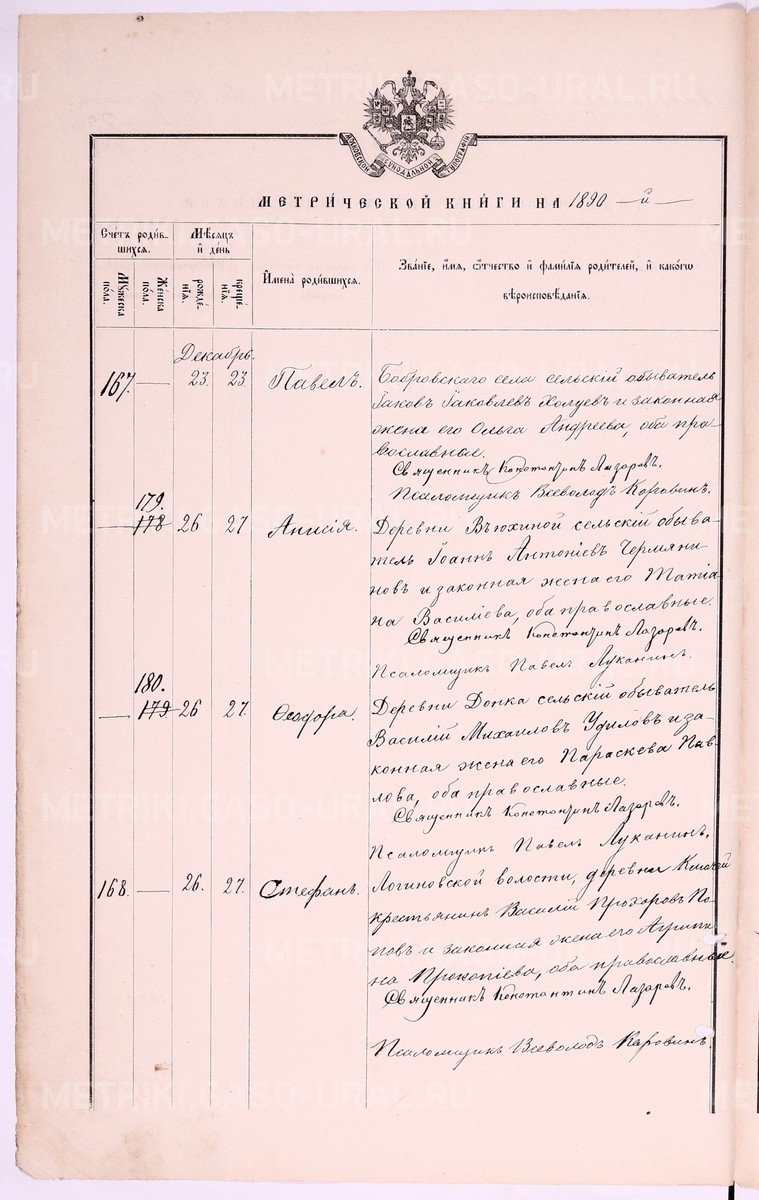 МОСКОВСКОЙ СѴНОДАЛЬНОЙ ТИПОГРАФІИ
МЕТРИ́ЧЕСКОЙ КНИ́ГИ НА 1890 — й —
Сче́тъ роди́в-
шихся.
Мѣ́сяцъ
и҆ де́нь
И҆мена̀ роди́вшихся.
Зва́нїе, и҆́мя, ѻ҆́тчество и҆ фами́лїя роди́телей, и҆ како́гѡ
вѣроисповѣ́данїя.
Мꙋ́жеска
по́ла.
Же́нска
по́ла.
рожде́-
нїя.
креще́-
нїя.
Декабрь.
167. — 23. 23 Павелъ. Бобровскаго села сельскій обыватель
Іаковъ Іаковлевъ Холуевъ и законная
жена его Ольга Андреева, оба пра-
вославные.
Священникъ Константинъ Лазаревъ.
Псаломщикъ Всеволодъ Коровинъ.
179.
— 178 26 27 Анисія. Деревни Вьюхиной сельскій обыва-
тель Іоаннъ Антоніевъ Чермяни-
новъ и законная жена его Татіа-
на Василіева, оба православные.
Священникъ Константинъ Лазаревъ.
Псаломщикъ Павелъ Луканинъ.
180.
— 179 26 27. Ѳеодора. Деревни Донка сельскій обыватель
Василій Михаиловъ Удиловъ и за-
конная жена его Параскева Пав-
лова, оба православные.
Священникъ Константинъ Лазаревъ.
Псаломщикъ Павелъ Луканинъ.
168. — 26. 27. Стефанъ. Логиновской волости, деревни
крестьянинъ Василій Прохоровъ По-
повъ и законная жена его Агрипи-
на Прокопіева, оба православные.
Священникъ Константинъ Лазаревъ.
Псаломщикъ Всеволодъ Коровинъ.
METRIKI.GASO-URAL.RU